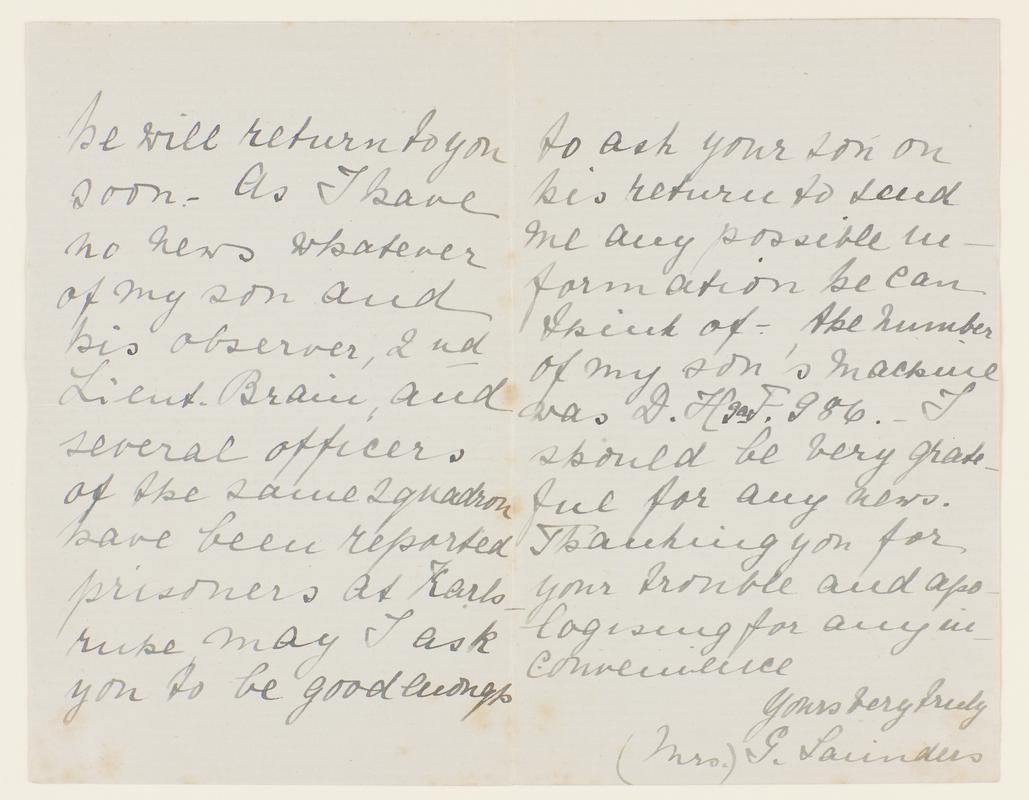 he will return to you
soon. - As I have
no news whatever
of my son and
his observer, 2nd
Lieut. Brain, and
several officers
of the same squadron
have been reported
prisoners at Karls-
ruhe may I ask
you to be good enough
to ask your son on
his return to send
me any possible in-
formation he can
think of - , the number
of my son's machine
was D. H F. 986. - I
should be very grate-
ful for any news.
Thanking you for
your trouble and apo-
logising for any in-
convenience
Yours very truly
(Mrs.) G. Saunders